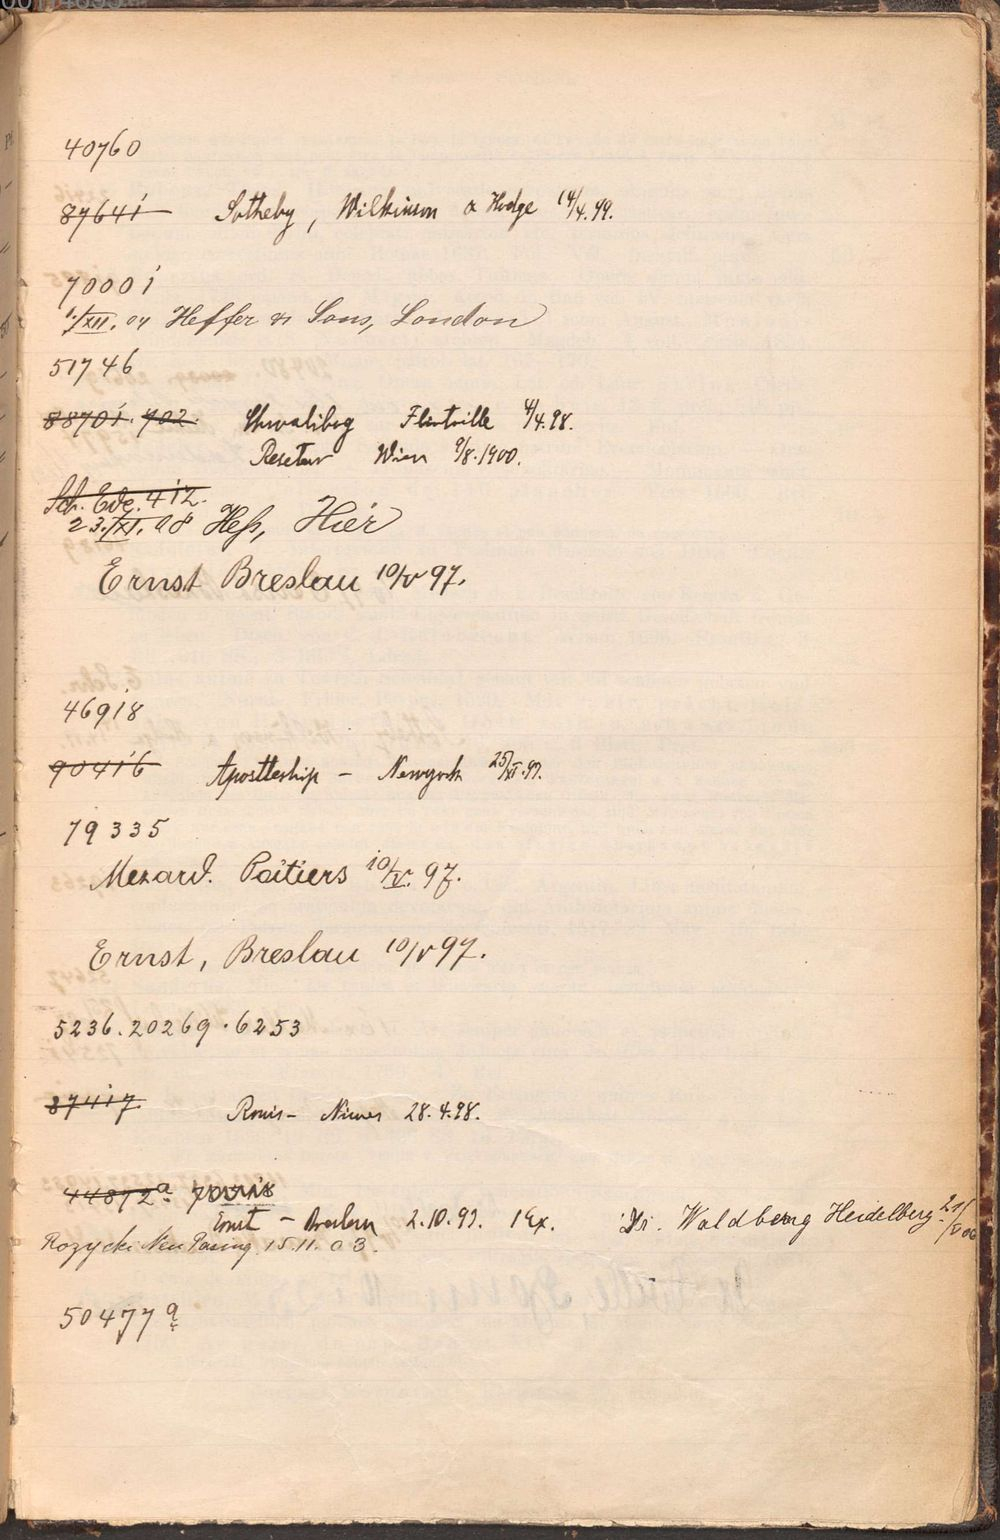 40760
87641 Sotheby, Wilkinson & Hodge 14/4.99.
70001
1./XII. 04 Heffer & Sons, London
51746
88701. 702. 4/4.98.
Resetar Wien 9/8.1900.
Sch. Ede. 412.
23./XI. 08 Heß, Hier
Ernst Breslau 10/V 97.
46918
90416 Apostleship - Newyork 25/XI.97.
79335
Mezard. Poitiers 10/V. 97.
Ernst, Breslau 10/V 97.
5236. 20269. 6253
87417 - Nimes 28.4.98.
44872a
Ernst - Breslau 2.10.99. 1 Ex. Dr. Waldberg Heidelberg
Rozycki Neu Pasing, 15.11.03.
50477a